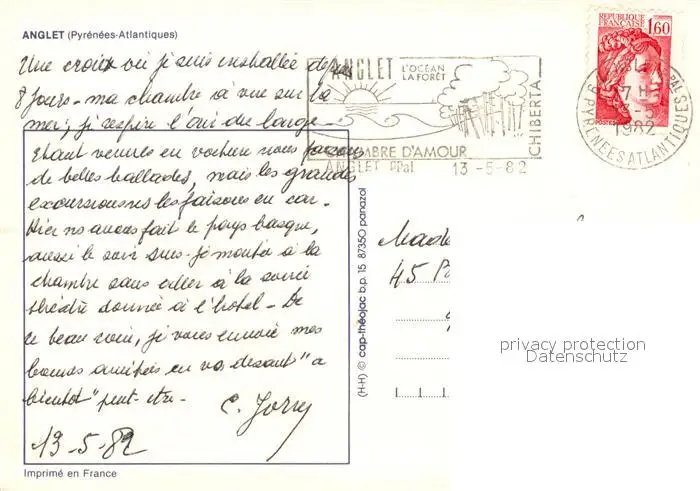 ANGLET (Pyrénées-Atlantiques)
Une croix où je suis installée depuis
8 jours - ma chambre a vue sur la
mer; je respire l'air du large -
Etant venues en voiture nous faisons
de belles ballades, mais les grandes
excursions ns les faisons en car.
Hier ns avons fait le pays basque,
aussi le soir suis-je montée à la
chambre sans aller à la soirée
théâtre donnée à l'hotel - De
ce beau coin, je vous envoie mes
bonnes amitiés en vs disant "a
bientôt" peut-etre -
C. Jorry
13-5-82
Imprimé en France
ANGLET
L'OCÉAN
LA FORÊT
CHIBERTA
CHAMBRE D'AMOUR
ANGLET PPal 13-5-82
REPUBLIQUE
FRANÇAISE
1,60
POSTES
1982
PYRENEES ATLANTIQUES
(H-H) © cap-théojac b.p. 15 87350 panazol
45
privacy protection
Datenschutz